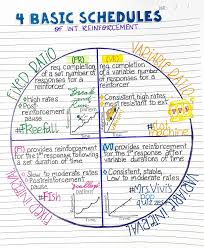 4 BASIC SCHEDULES
OF INT. REINFORCEMENT
FIXED RATIO
VARIABLE RATIO
(FR)
req. completion
of a set number
of responses for
a reinforcer
High rates
Post
#FReefall
Break
(VR)
req. completion
of a variable number
of responses for a
reinforcer
Consistent, high rates
most resistant to ext.
#
machine
(FI) provides reinforcement
for the 1st response following
a set duration of time
Slow to moderate rates
#FIsh
Scallop
pattern!
(VI) provides reinforcement
for the 1st response after a
variable duration of time
Consistent, stable,
Low to moderate rates
#Mrs.Vivi's
pop
quizzes
FIXED INTERVAL
VARIABLE INTERVAL